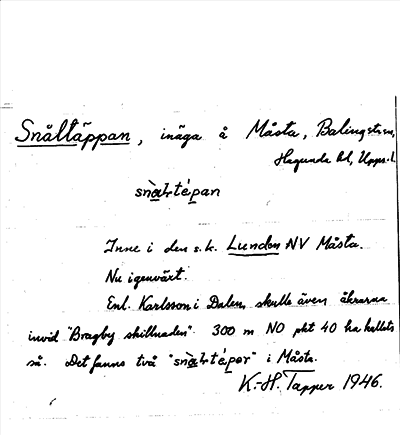 Snåltäppan, inäga å Måsta, Balingsta sn,
Hagunda hd, Upps. l.
snàɫtépan
Inne i den s.k. Lunden NV Måsta.
Nu igenväxt.
Enl. Karlsson i Dalen skulle även åkrarna
invid "Bragby skillnaden" 300 m NO pkt 40 ha kallats
så. Det fanns två "snàɫtépor" i Måsta.
K.-H. Tapper 1946.